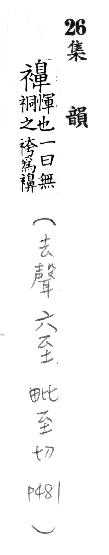 26集韻
襣 褌也一曰無
之袴爲襣
(去聲 六至 毗至切 P481)